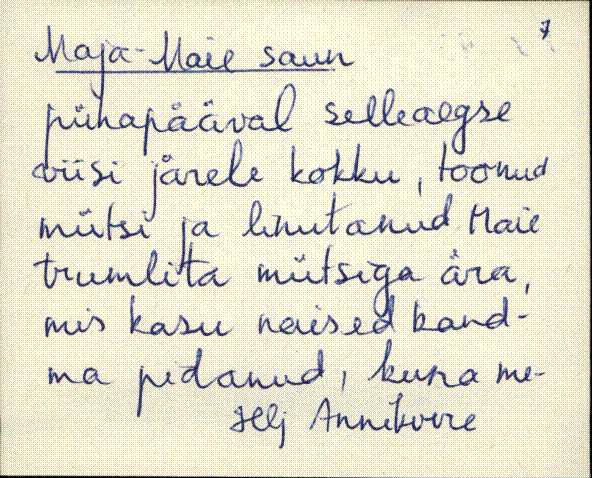 7
Maja-Maie saun
pühapääval selleaegse
viisi järele kokku, toonud
mütsi ja linutanud Maie
trumlita mütsiga ära,
mis kasu naised kand-
ma pidanud, kuna me-
Hlj Annikvere